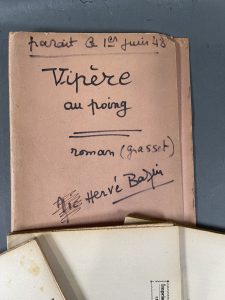 paraît le 1er juin 48
Vipère
au poing
roman (grasset)
Hervé Bazin